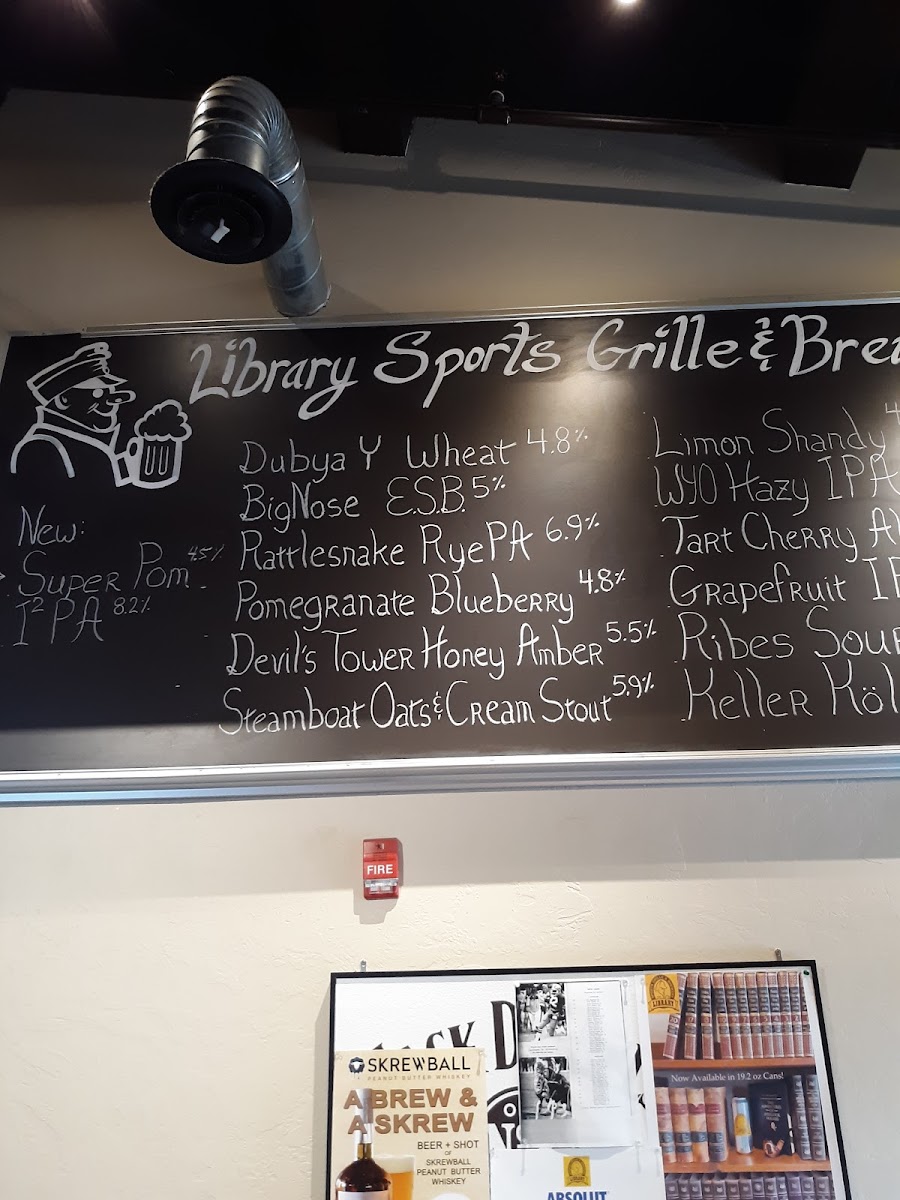 Library Sports Grille & Bre
New:
Super Pom 4.5%
I²PA 8.2%
Dubya Y Wheat 4.8%
BigNose E.S.B. 5%
Rattlesnake RyePA 6.9%
Pomegranate Blueberry 4.8%
Devil's Tower Honey Amber 5.5%
Steamboat Oats & Cream Stout 5.9%
Limon Shandy 4
WYO Hazy IPA
Tart Cherry Al
Grapefruit IP
Ribes Sour
Keller Köl
FIRE
SKREWBALL
PEANUT BUTTER WHISKEY
A BREW &
A SKREW
BEER + SHOT
OF
SKREWBALL
PEANUT BUTTER
WHISKEY
LIBRARY
Now Available in 19.2 oz Cans!
ABSOLUT